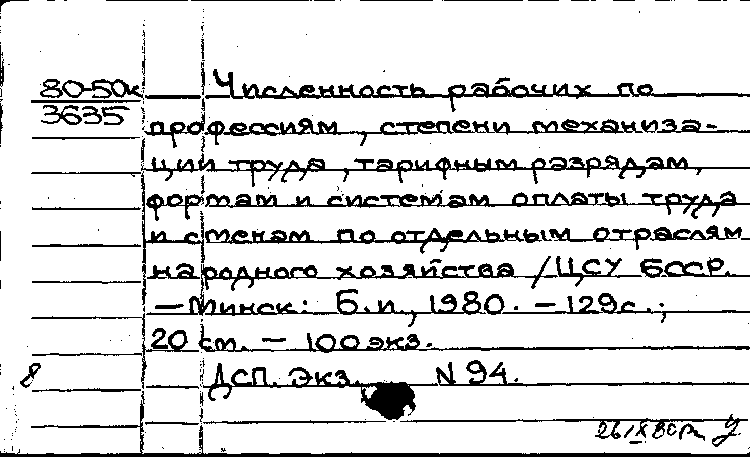 80-50к
3635
Численность рабочих по
профессиям, степени механиза-
ции труда, тарифным разрядам,
формам и системам оплаты труда
и сменам по отдельным отраслям
народного хозяйства /ЦСУ БССР.
— Минск: Б.и., 1980. — 129с.;
20 см. — 100 экз.
8 ДСП. Экз. N 94.
26/IX 80г.